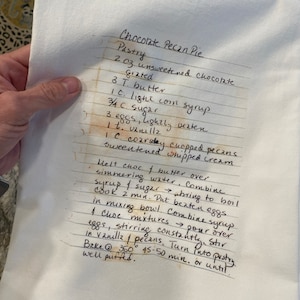 Chocolate Pecan Pie
Pastry
2 oz unsweetened chocolate
grated
3 T. butter
1 C. light corn syrup
3/4 C. sugar
3 eggs, lightly beaten
1 t. vanilla
1 C coarsely chopped pecans
sweetened whipped cream
Melt choc & butter over
simmering water. Combine
syrup & sugar → bring to boil
cook 2 min. Put beaten eggs
in mixing bowl. Combine syrup
& choc mixtures → pour over
eggs, stirring constantly. Stir
in vanilla & pecans. Turn into pastry
Bake @ 350° 45-50 min. or until
well puffed.